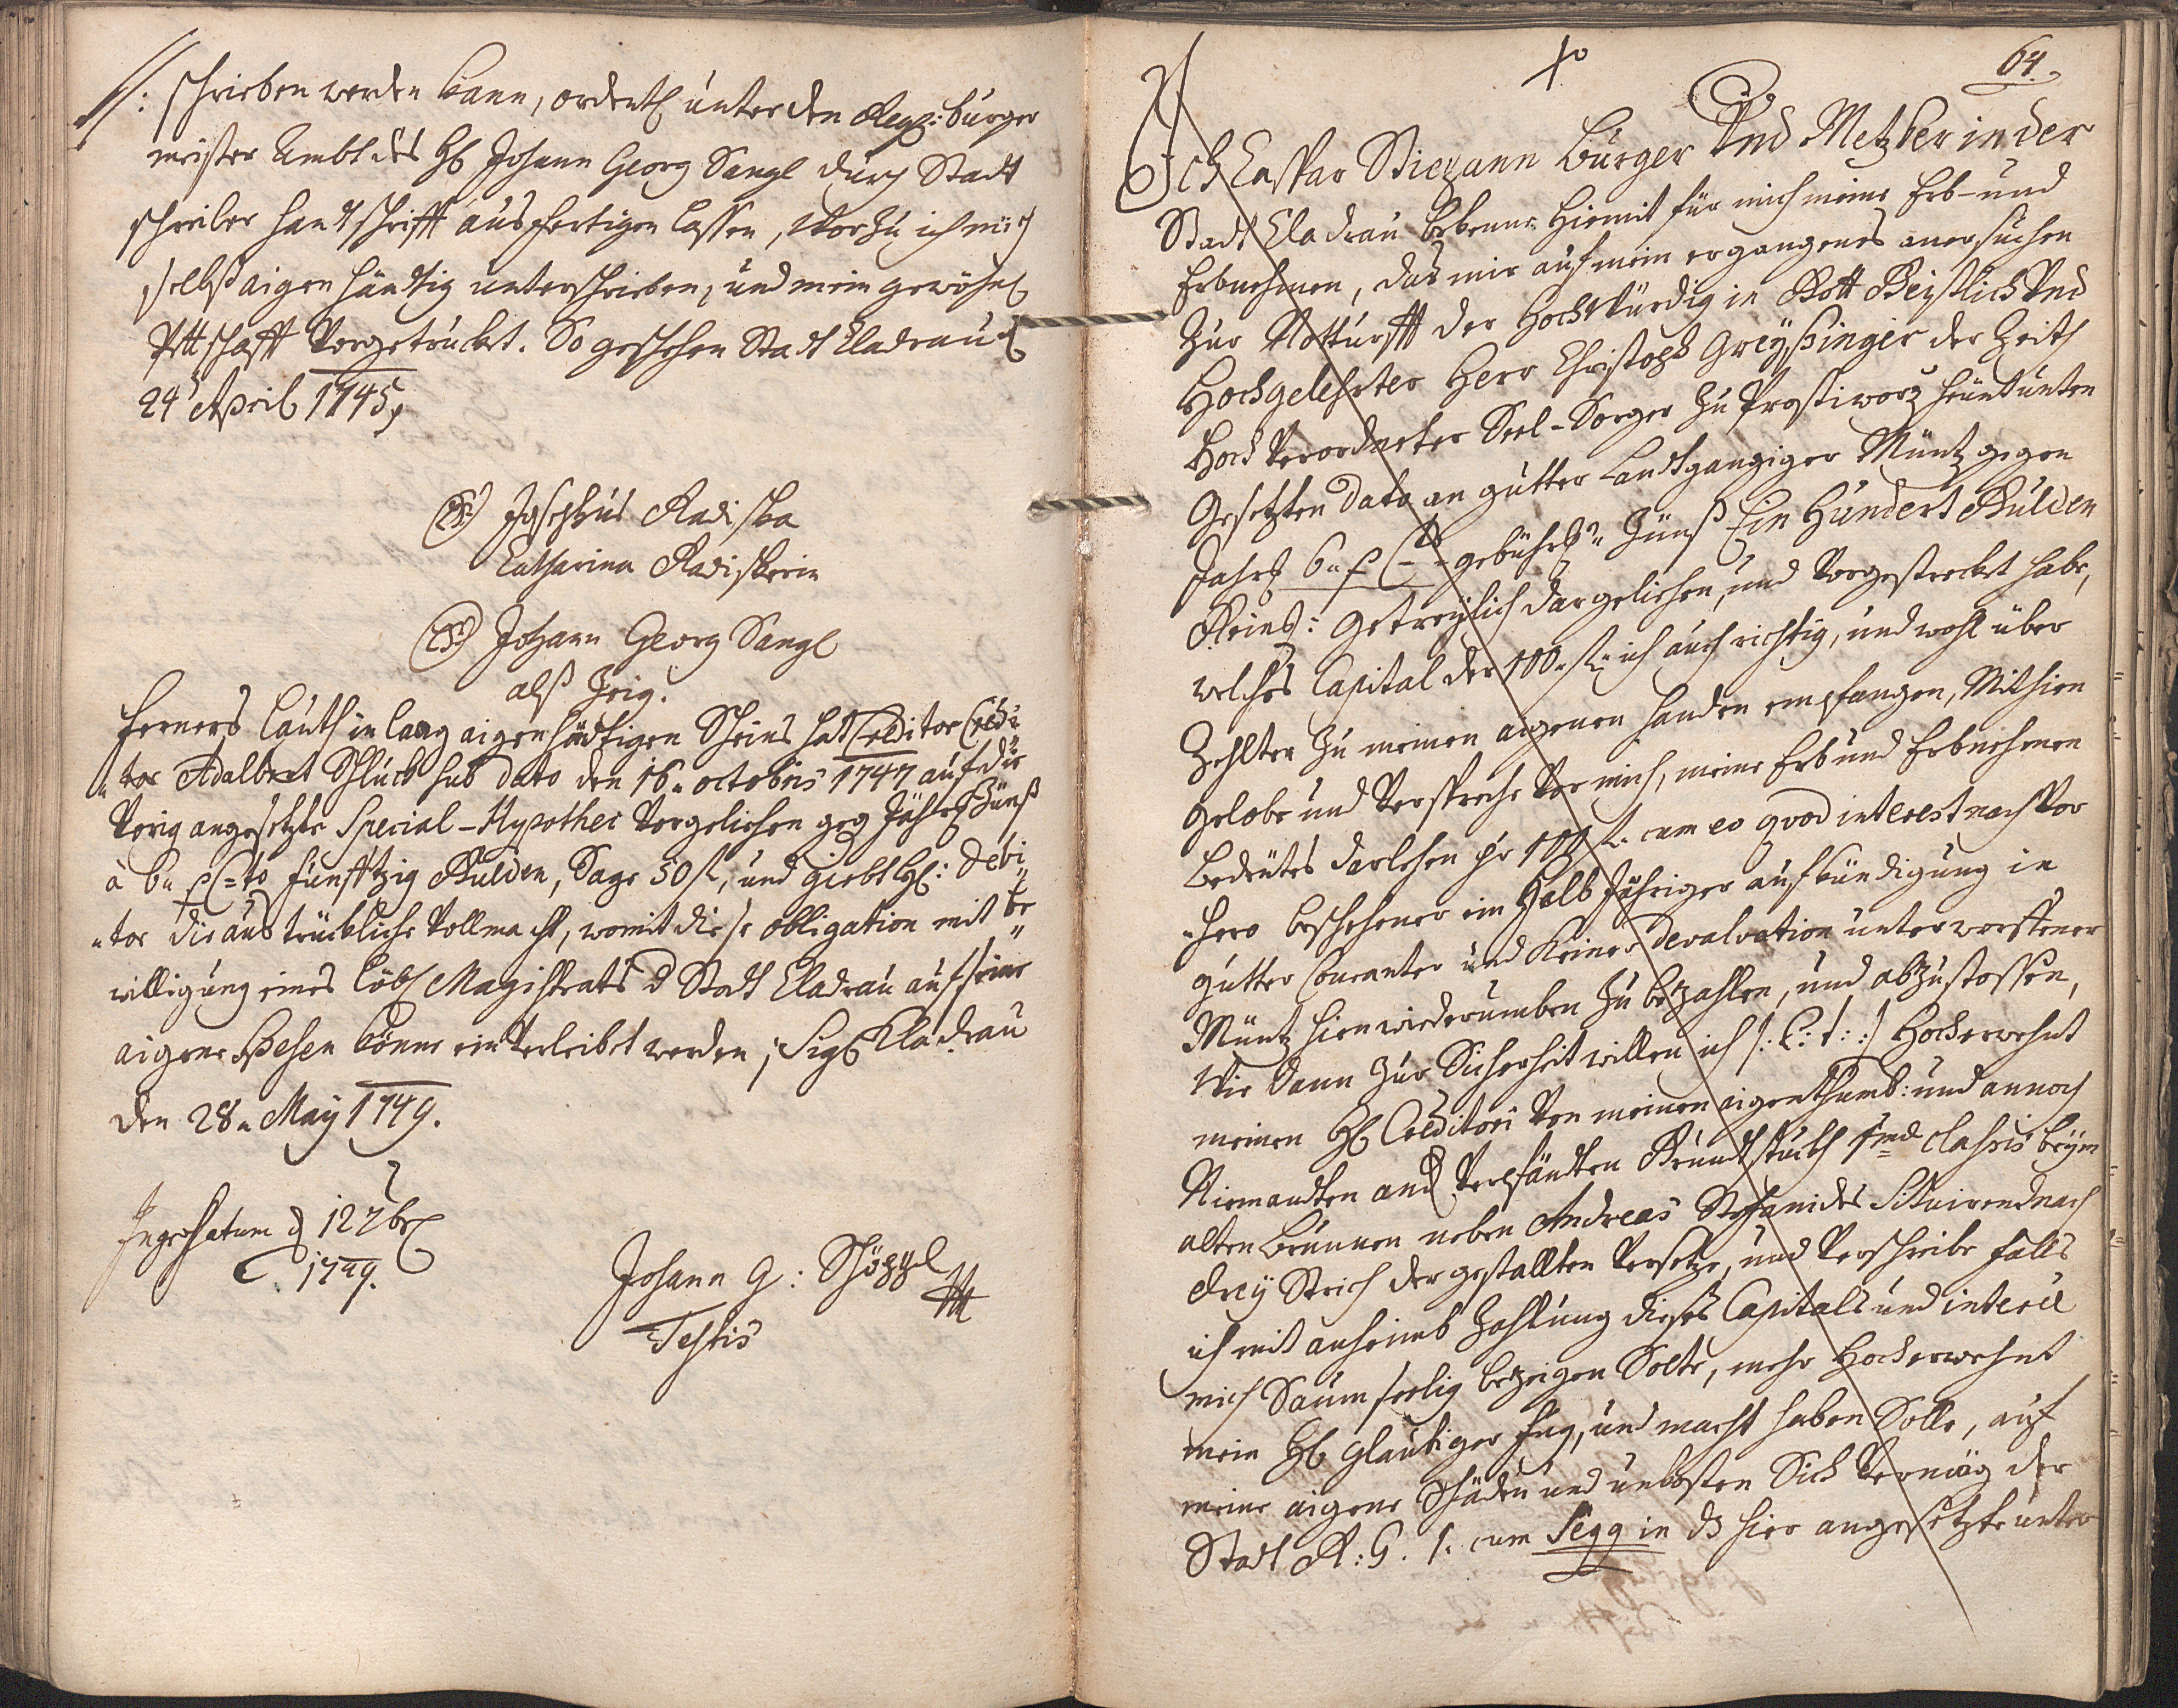 //: schrieben werden kann, ordentl unter den Regg: burger
meister Ambt des H Johann Georg Sangl durch Stadt
schreiber handtschrifft ausfertigen lassen, Vorzu ich mich
selbst aigen händtig unterschrieben, und mein gewöhnl
Pettschafft Vorgetruckt. So geschehen Stadt Cladrau d
24 April 1745
(LS) Josephus Radiska
Catharina Radiskerin
(LS) Johann Georg Sangl
alß Zeig.
Ferners lauth in lang aigenhändtigen Scheins hat Creditor
tor Adalbert Schluck sub dato den 16. octobris 1747 auf die
Vorig angesetzte Special-Hypothec Vorgeliehen geg Jährl Zünß
à 6 p C=to funfftzig Gulden, Sage 50 fl, und giebt H: Debi
tor die austruckliche Vollmacht, womit diese obligation mit be
willigung eines löbl Magistrats d Stadt Cladrau auf seine
aigene Spesen könne ein Verleibet werden; Sigl Cladrau
den 28. May 1749.
Ingrossatum d 12 7br
1749.
Johann G: Schöppl
Testis
64.
Ich Caspar Wiezann Burger Und Metzker in der
Stadt Cladrau bekenne hiemit für mich meine Erb- und
Erbnehmen, das mir auf mein ergangenes anersuchen
Zur Notturfft der Hochwürdig in Gott Geistlich Und
Hochgelehrter Herr Christoph Greyßinger der Zeith
Hoch Verordneter Seel-Sorger zu Prostiworz heunt unten
gesetzten Dato an gutter Landtgangiger Müntz gegen
Jahrl 6 p C gebührl Zünß Ein Hundert Gulden
Reinl: getreylich dargeliehen, und Vorgestreckt habe,
welches Capital der 100 fl ich auch richtig, und wohl über
Zehlter zu meinen aigenen handen empfangen, Mithien
gelobe und Verspreche Vor mich, meine Erb und Erbnehmen
bedeutes darlehen pr 100 fl. cum eo quod interest nach Vor
hero beschehener ein Halb Jähriger aufkündigung in
gutter Couranter und keiner devalvation unterworffener
Müntz hienwiederumben zu bezahlen, und abzustossen,
Wie dann zur Sicherheit willen ich /: C: t: :/ Hocherwehnt
meinen H Creditori Von meinen aigenthumb: und annoch
Niemandten and Verpfändten Grundtstuckh 1mae classis beym
alten Brunnen neben Andreas Stephanides Situirend nach
drey Strich der gestallten Versetze, und Verschreibe falls
ich mit anheimb Zahlung dieses Capitals und interes
mich Saum seelig bezeigen Solte, mehr Hocherwehnt
mein H Glaubiger Fug, und macht haben Solle, auf
meine aigene Schäden und unkosten Sich Vermög der
Stadt R: G. 1. cum Segg in ds hier angesetzte unter